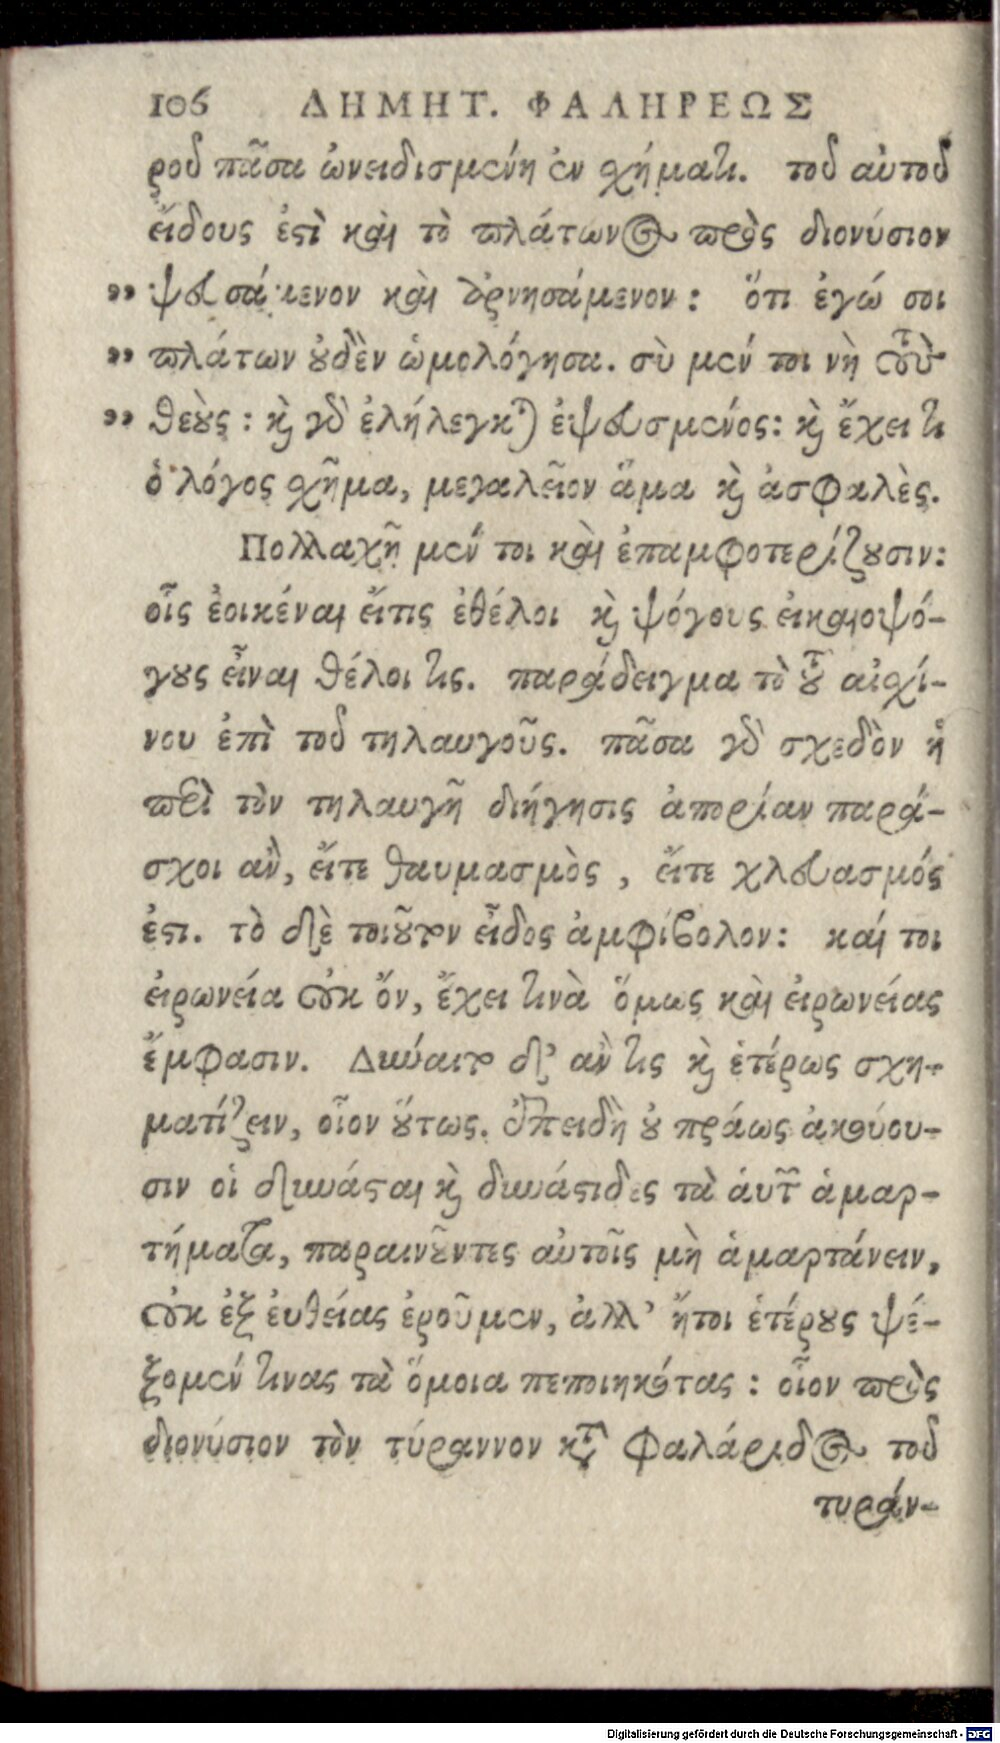 106 ΔΗΜΗΤ. ΦΑΛΗΡΕΩΣ
ρου πᾶσα ὠνειδισμένη ἐν σχήματι. τοῦ αὐτοῦ
εἴδους ἐστὶ καὶ τὸ πλάτωνος πρὸς διονύσιον
„ ψευσάμενον καὶ ἀρνησάμενον: ὅτι ἐγώ σοι
„ πλάτων οὐδὲν ὡμολόγησα. σὺ μέν τοι νὴ τοὺς
„ θεούς: καὶ γὰρ ἐλήλεγκται ἐψευσμένος: καὶ ἔχει τι
ὁ λόγος σχῆμα, μεγαλεῖον ἅμα καὶ ἀσφαλὲς.
Πολλαχῆ μέν τοι καὶ ἐπαμφοτερίζουσιν:
οἷς ἐοικέναι εἴτις ἐθέλοι καὶ ψόγους εἰκαιοψό-
γους εἶναι θέλοι τις. παράδειγμα τὸ τοῦ αἰσχί-
νου ἐπὶ τοῦ τηλαυγοῦς. πᾶσα γὰρ σχεδὸν ἡ
περὶ τὸν τηλαυγῆ διήγησις ἀπορίαν παρά-
σχοι ἂν, εἴτε θαυμασμὸς, εἴτε χλευασμός
ἐστι. τὸ δὲ τοιοῦτον εἶδος ἀμφίβολον: καί τοι
εἰρωνεία οὐκ ὄν, ἔχει τινὰ ὅμως καὶ εἰρωνείας
ἔμφασιν. Δύναιτο δ' ἄν τις καὶ ἑτέρως σχη-
ματίζειν, οἷον οὕτως. ἐπειδὴ οὐ πράως ἀκούου-
σιν οἱ δυνάσται καὶ δυνάστιδες τὰ αὑτῶν ἁμαρ-
τήματα, παραινοῦντες αὐτοῖς μὴ ἁμαρτάνειν,
οὐκ ἐξ εὐθείας ἐροῦμεν, ἀλλ' ἤτοι ἑτέρους ψέ-
ξομέν τινας τὰ ὅμοια πεποιηκότας: οἷον πρὸς
διονύσιον τὸν τύραννον κατὰ Φαλάριδος τοῦ
τυράν-
Digitalisierung gefördert durch die Deutsche Forschungsgemeinschaft - DFG